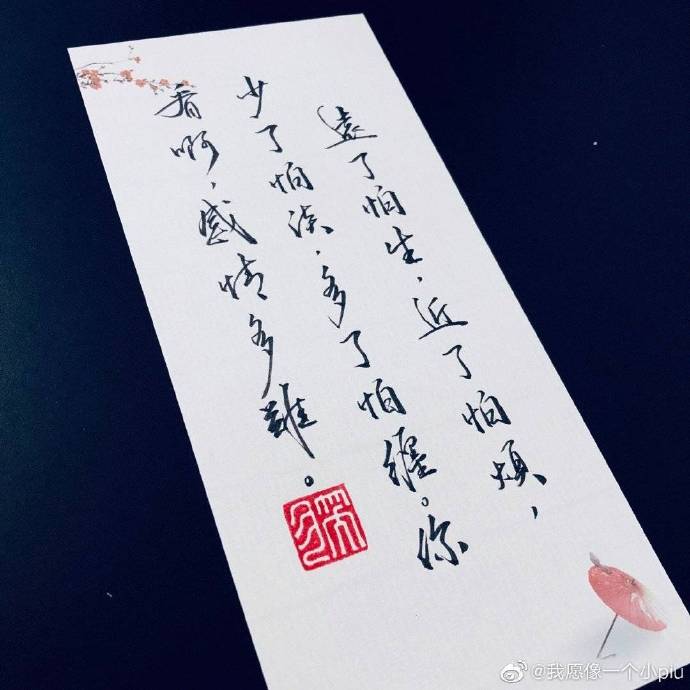 遠了怕生，近了怕煩，
少了怕淡，多了怕纏。你
看啊，感情多難。
@我愿像一个小piu